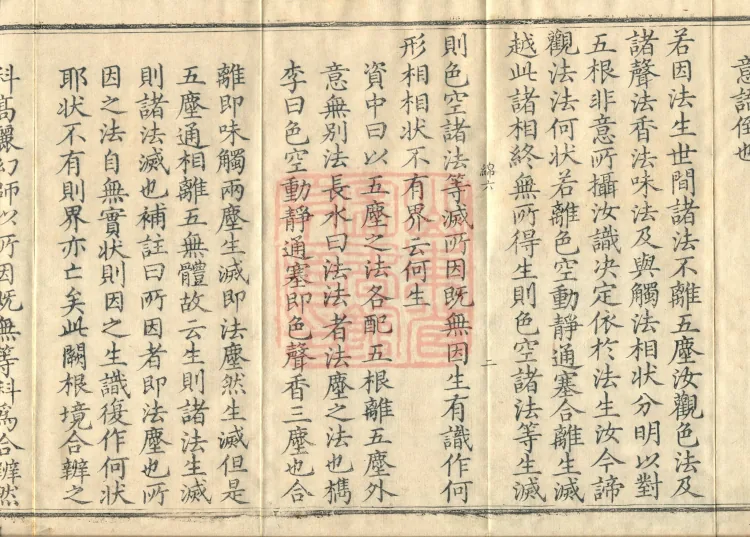 意語倒也
若因法生世間諸法不離五塵汝觀色法及
諸聲法香法味法及與觸法相状分明以對
五根非意所攝汝識决定依於法生汝今諦
觀法法何状若離色空動靜通塞合離生滅
越此諸相終無所得生則色空諸法等生滅
綿六
二
則色空諸法等滅所因既無因生有識作何
形相相状不有界云何生
資中曰以五塵之法各配五根離五塵外
意無別法長水曰法法者法塵之法也檇
李曰色空動靜通塞即色聲香三塵也合
離即味觸兩塵生滅即法塵然生滅但是
五塵通相離五無體故云生則諸法生滅
則諸法滅也補註曰所因者即法塵也所
因之法自無實状則因之生識復作何状
耶状不有則界亦亡矣此闕根境合辨之
科高麗幻師以所因既無等科爲合辨然